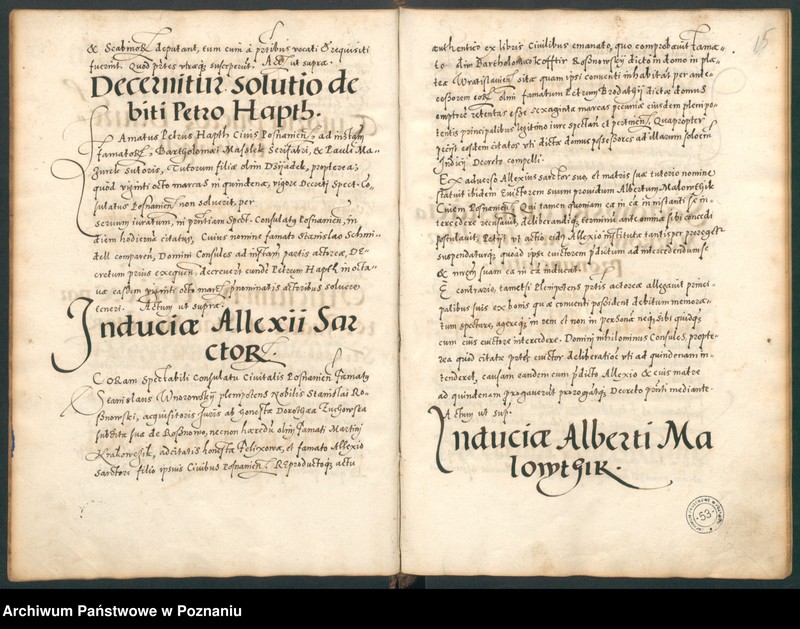 & Scabinor deputant, eum cum à prtibus vocati & requisiti
fuerint. Quod prtes utræq; susceperūt. Act ut supra.
Decernitur solutio de
biti Petro Hapth.
Famatus Petrus Hapth Civis Posnanien, ad instam
famator, Bartholomæi Masslek Serifabri, & Pauli Ma-
zurek sutoris, Tutorum filiæ olim Dzijadek, propterea,
quod viginti octo marcas in quindena, vigore Decreti Spect. Co-
sulatus Posnanien non solverit, per
serum iuratum, in prntiam Spect. Consulatus Posnanien, in
diem hodiernū citatus, Cuius nomine famato Stanislao Schmi-
dell comparen, Domini Consules ad instam partis actoreæ, De-
cretum prius exequen, decrever eund Petrum Hapth in octa-
va easdem viginti octo marcas prnominatis actoribus solvere
teneri. Actum ut supra.
Induciæ Allexii Sar
ctor.
Coram Spectabili Consulatu Civitatis Posnanien famatus
Stanislaus Wnorowskÿ plenipotens Nobilis Stanislai Ro-
ßnowski, acquisitoris iuris ab honesta Dorothea Tuchowska
subdita sua de Roßnowo, necnon hæredū olim famati Martini
Krakowczik, ad citatis honesta Felixowa, et famato Allexio
sarctore filio ipsius Civibus Posnanien. Reproductoq; actu
15
authentico ex libris Civilibus emanato, quo comprobavit fama-
to dim Bartholomæo Kofftir Roßnowskÿ dicto in domo in pla-
tea Wratislavien sita quam ipsi conventi inhabitāt per ante-
cessorem eor olim famatum Petrum Brodatÿ dictæ domus
emptore retentas esse sexaginta marcas pecuniæ eiusdem plenipo-
tentis principalibus legitimo iure spectan et pertinen. Quapropter
petijt eosdem citatos uti dictæ domus possessores ad illarum soloem
Judicij Decreto compelli.
Ex adverso Allexius sarctor suo, et matris suæ tutorio nomine
statuit ibidem Evictorem suum providum Albertum Malowthik
Civem Posnanien. Qui tamen quoniam ea in ca in instanti se in-
tercedere recusavit, deliberandiq; terminū ante omnia sibi concedi
postulavit. Petijt ut actio eidem Allexio instituta tantisper proroget
suspendaturq; quod ipse evictorem prdictum ad intercedendum se
& mrem suam ea in ca inducat.
E contrario, tametsi Plenipotens partis actoreæ allegavit princi-
palibus suis ex bonis quæ conventi possident debitum memora-
tum spectare, agereq; in rem et non in personā neq; sibi quidq;
cum eius evictore intercedere. Domini nihilominus Consules, propte-
rea quod citatæ prtes evictor deliberatioē uti ad quindenam in-
tenderet, causam eandem cum prdicto Allexio & eius matre
ad quindenam prorogaverūt prorogātq; Decreto prnti mediante.
Actum ut sup.
Induciæ Alberti Ma
lowthik.
53
Archiwum Państwowe w Poznaniu